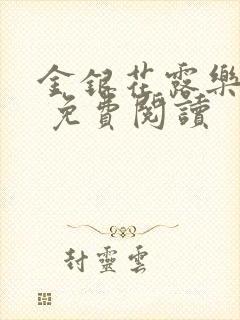 金銀花露樂
免費閱讀
封靈雲